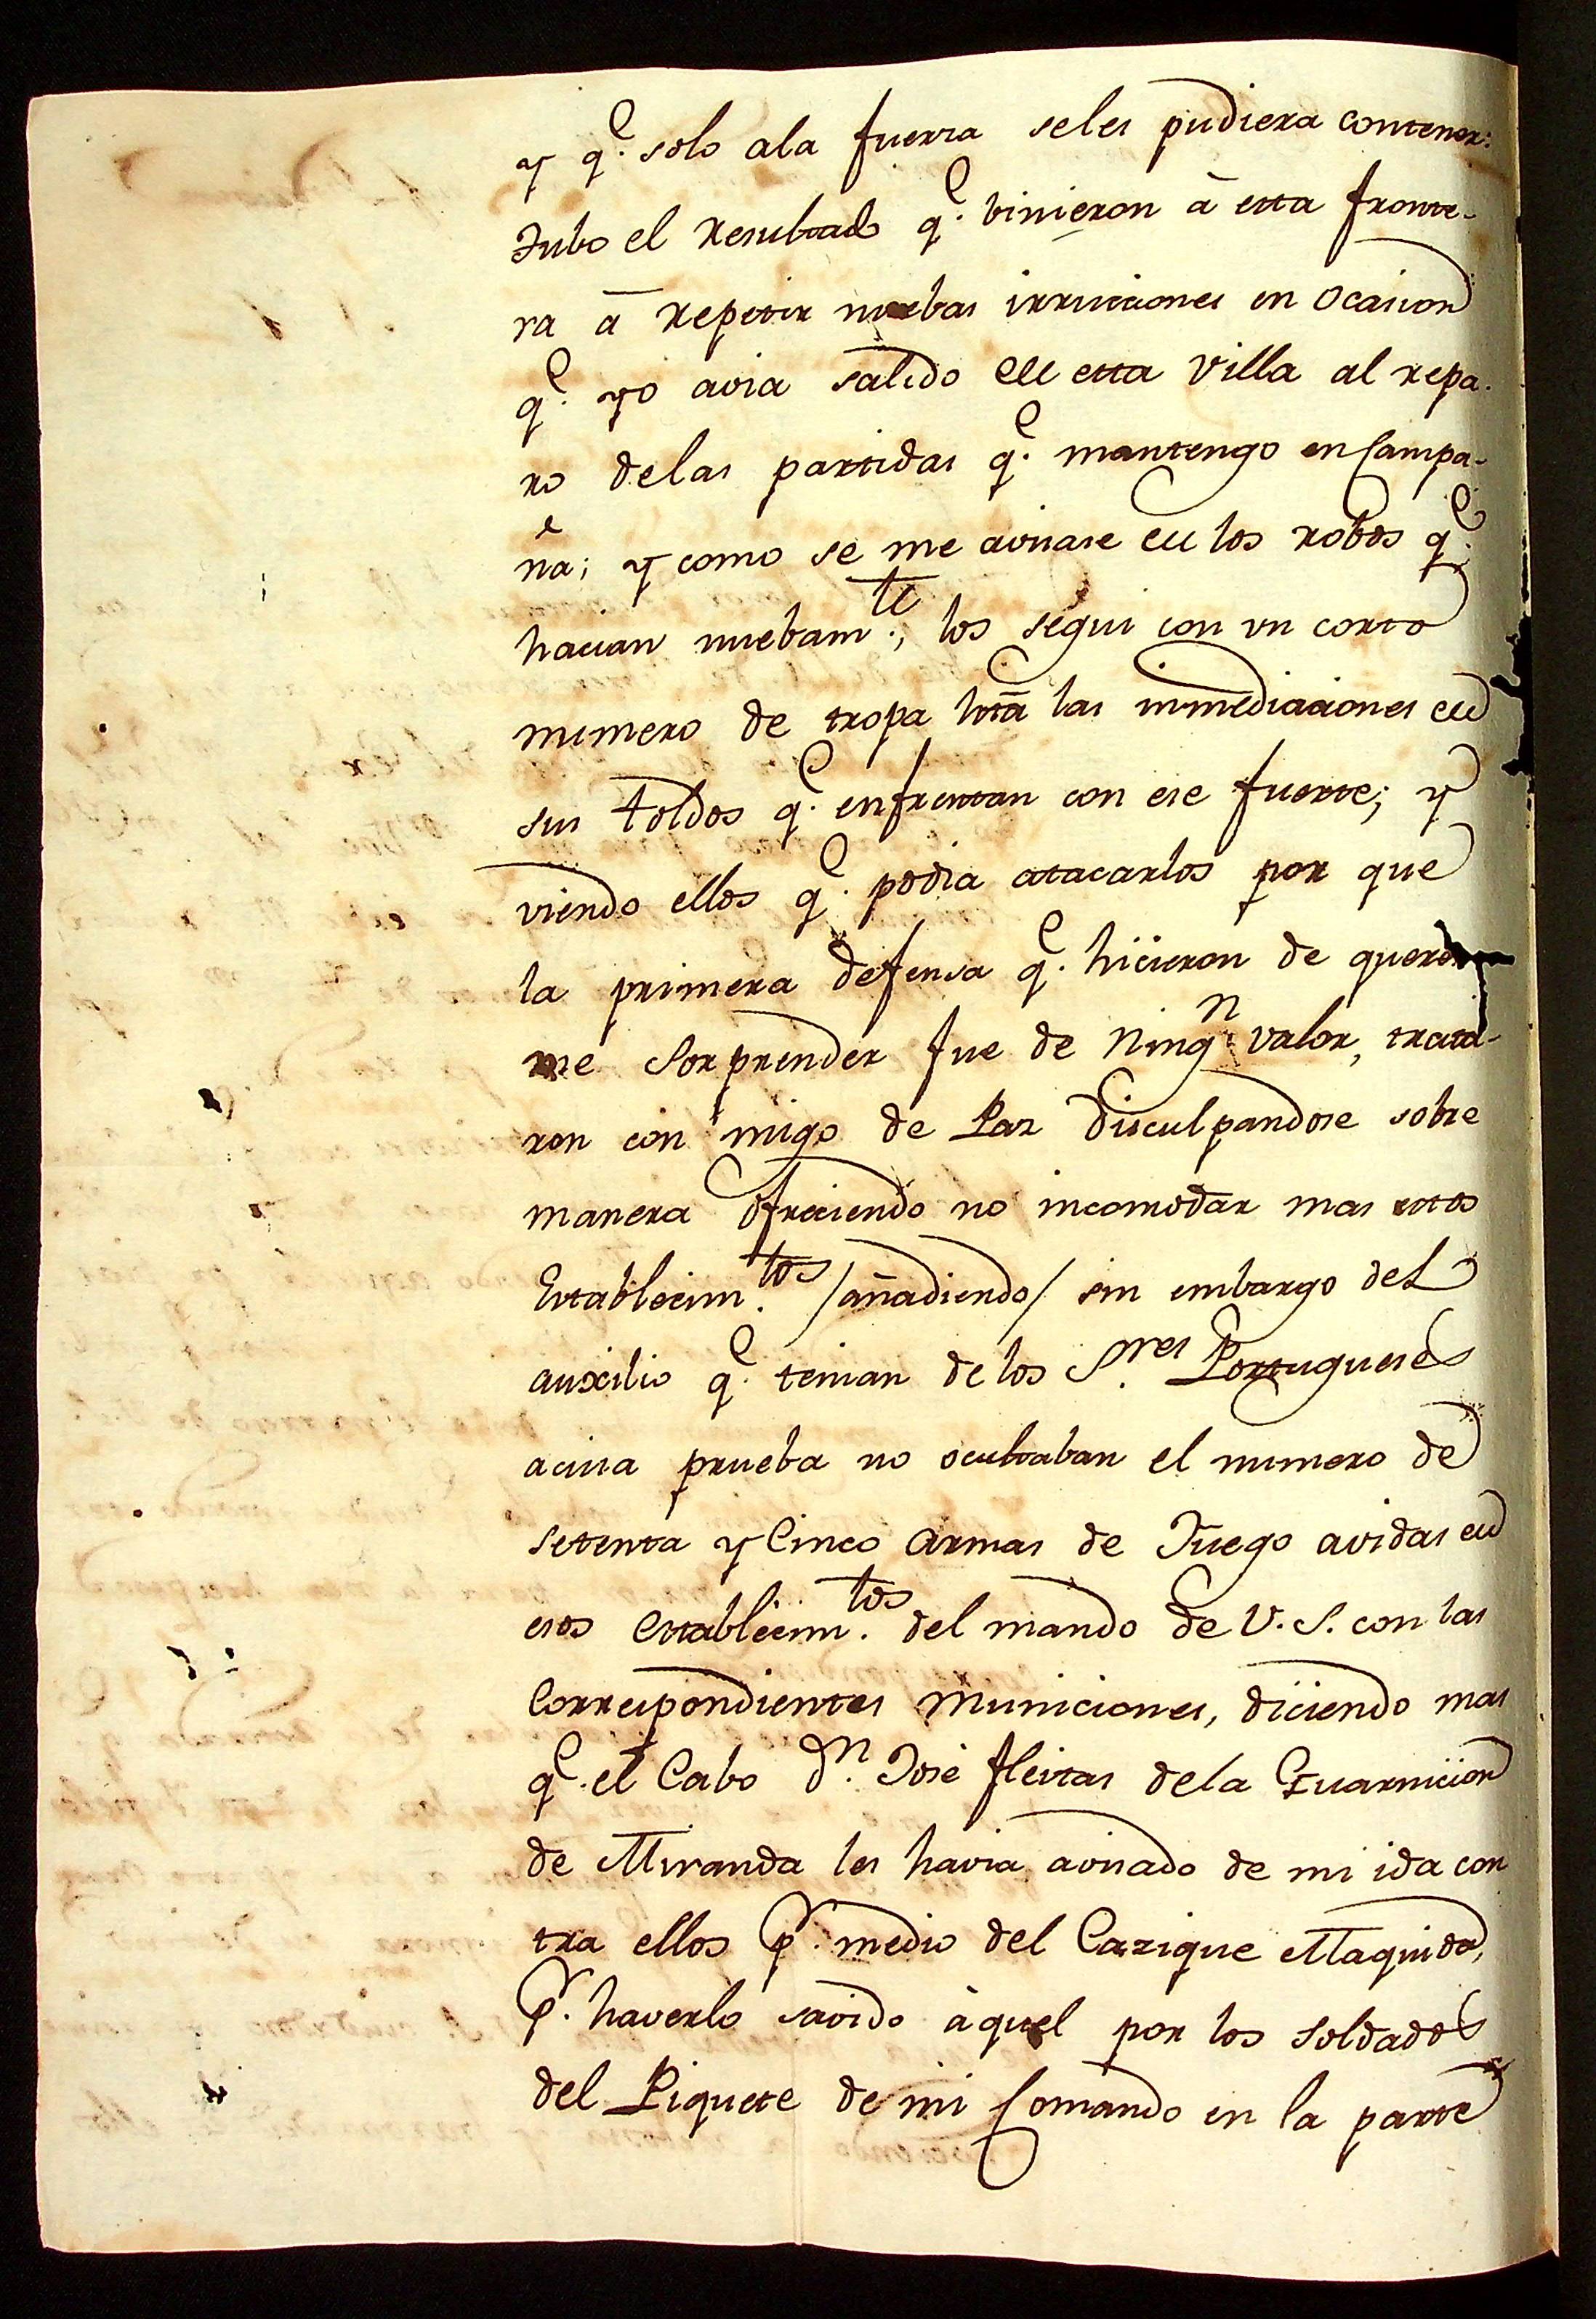 y q.e solo ala fuerza seles pudiera contener:
tubo el resultado q.e binieron â esta fronte-
ra â repetir nuebas irrucciones en ocasion
q.e yo avia salido de esta Villa al repa-
ro delas partidas q.e mantengo en Campa-
ña; y como se me avisase de los robos q.e
hacian nuebam.te, los segui con vn corto
numero de tropa htã las inmediaciones de
sus toldos q.e enfrentan con ese fuerte; y
viendo ellos q.e podia atacarlos por que
la primera defensa q.e hicieron de querer
me sorprender fue de ning.n valor, trata-
ron con migo de Paz disculpandose sobre
manera ofreciendo no incomodar mas estos
Establecim.tos /añadiendo/ sin embargo del
auxilio q.e tenian de los S.res Portugueses
acuia prueba no ocultaban el numero de
setenta y Cinco armas de Fuego avidas de
esos establecim.tos del mando de V.S. con las
Correspondientes municiones, diciendo mas
q.e el Cabo D.n José fleitas dela Guarnicion
de Miranda les havia avisado de mi ida con
tra ellos p.r medio del Cazique Maquida,
p.r haverlo savido àquel por los soldados
del Piquete de mi Comando en la parte